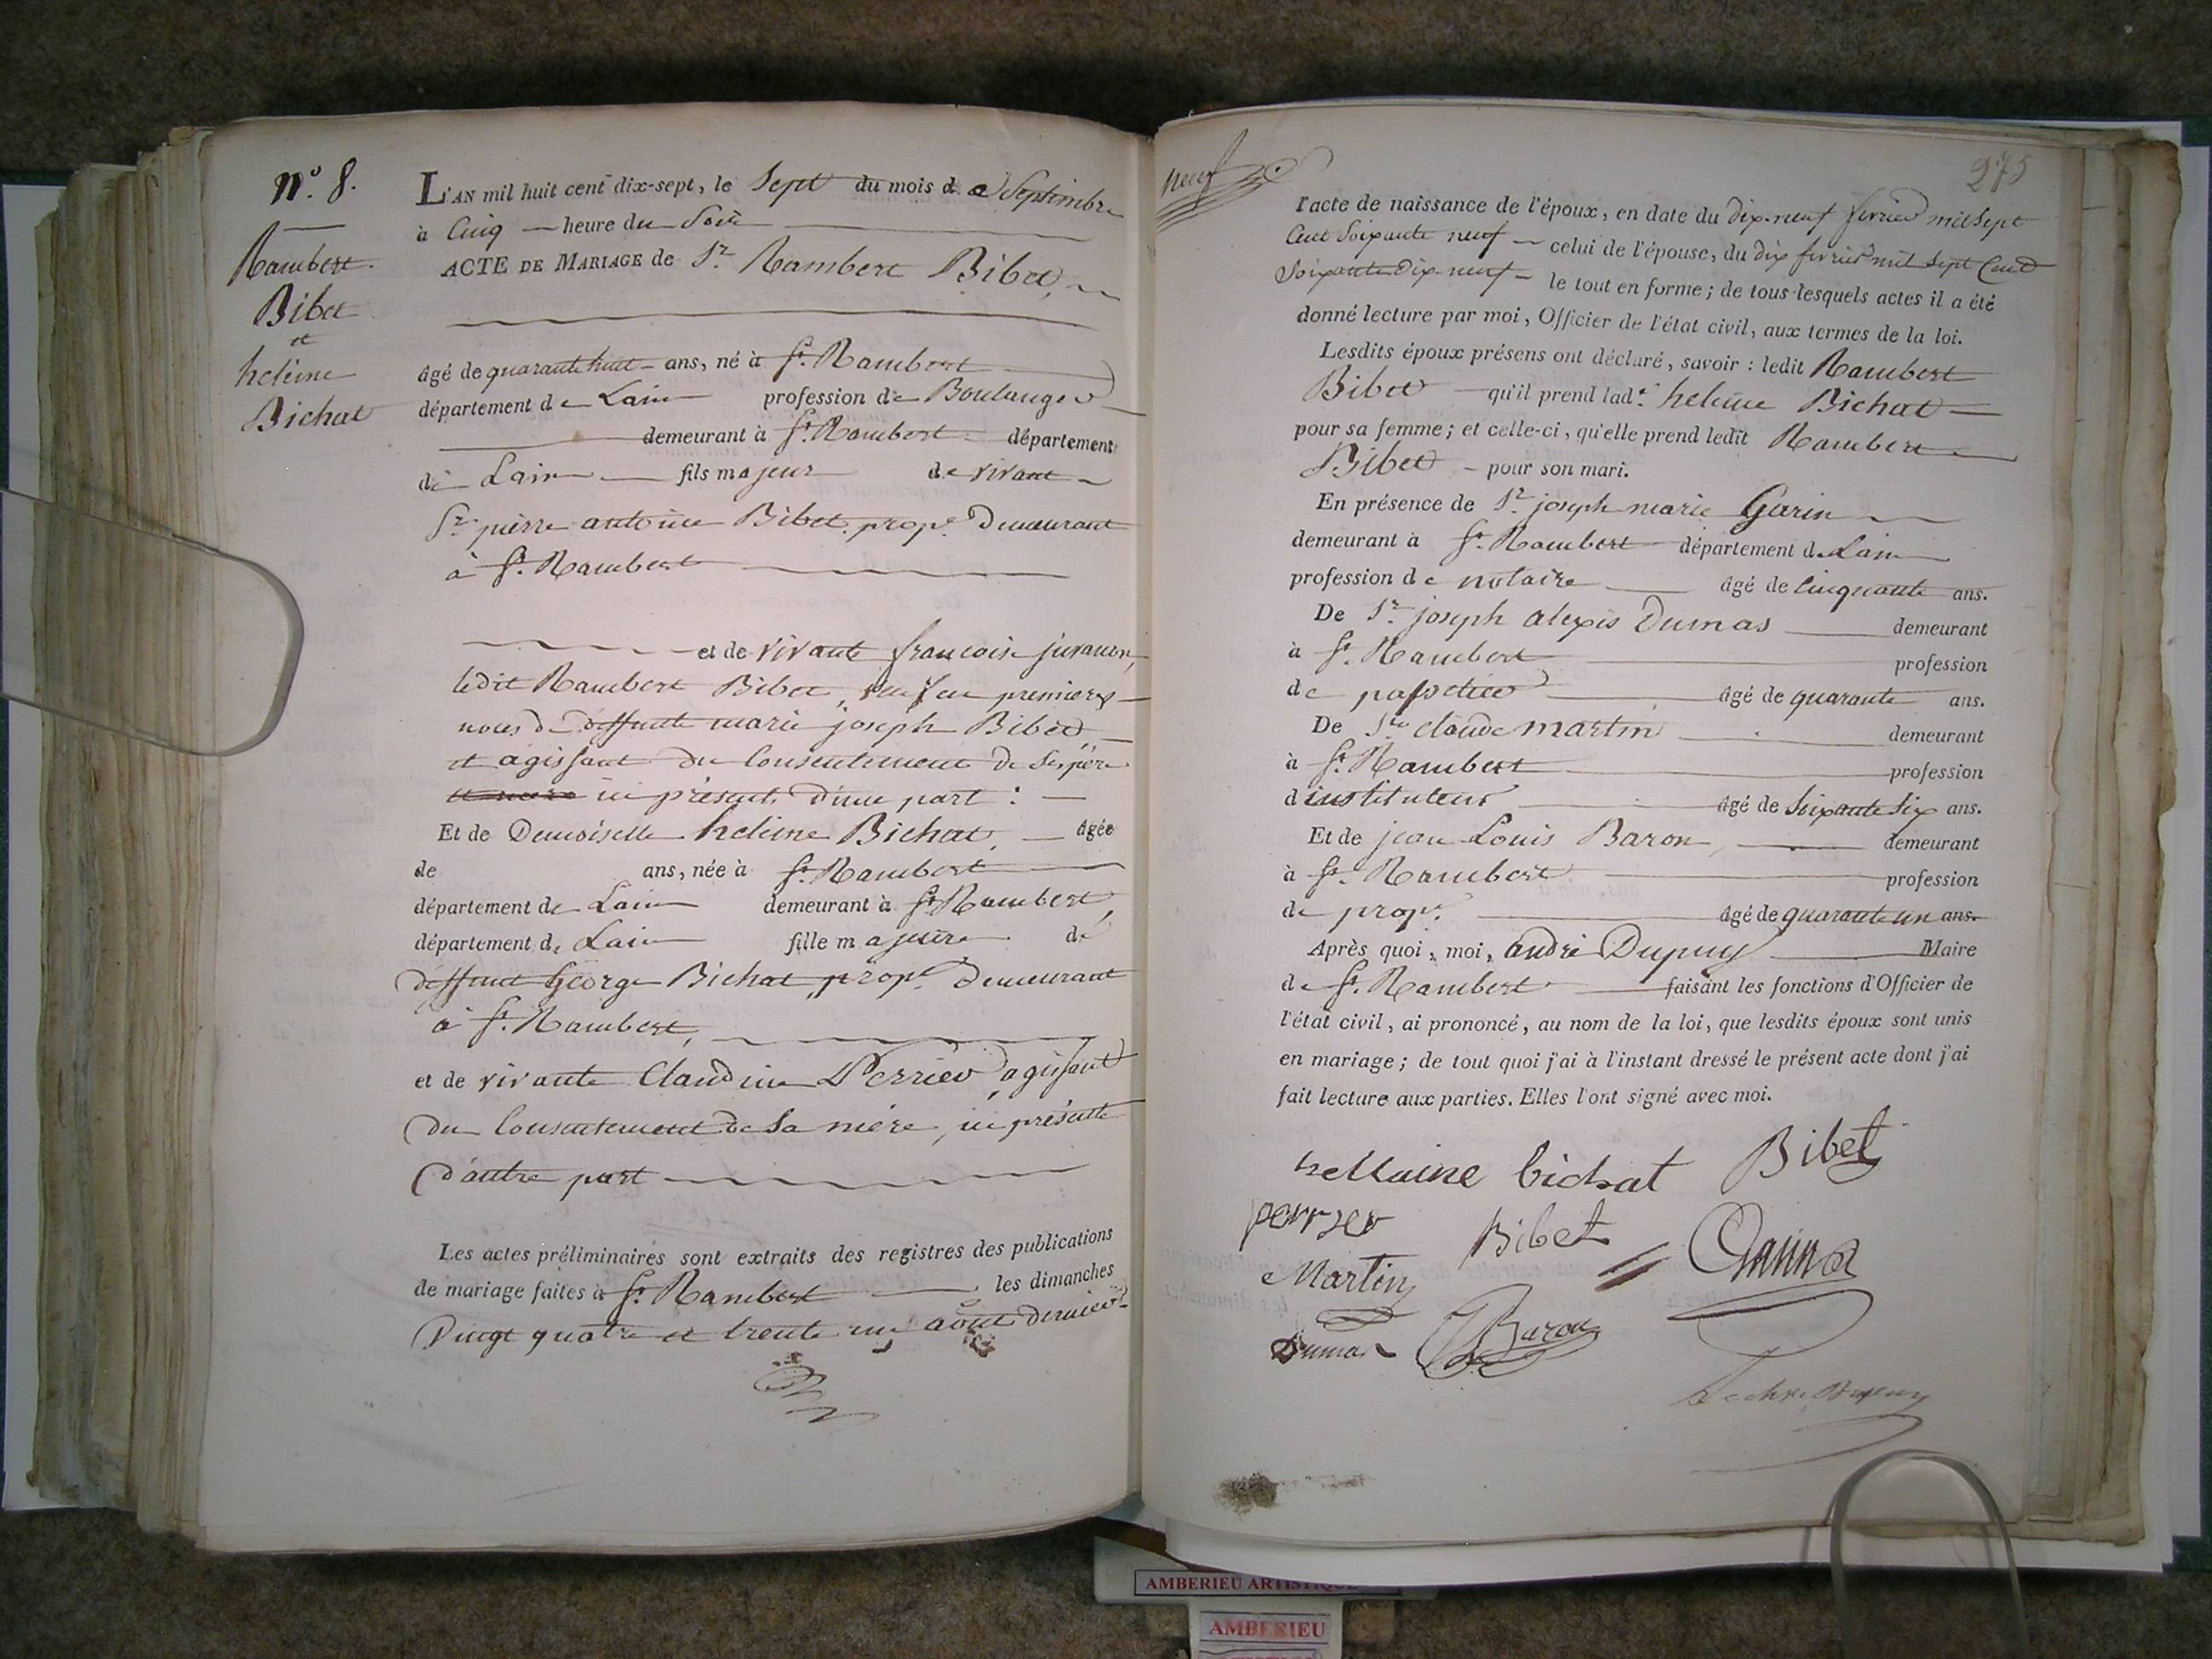 n.° 8.
Rambert
Bibet
et
heleine
Bichat
L'AN mil huit cent dix-sept, le Sept du mois de Septembre
à Cinq heure du Soir
ACTE DE MARIAGE de Sr. Rambert Bibet,
âgé de quarante huit ans, né à St. Rambert
département de Lain profession de Boulanger
demeurant à St. Rambert département
de Lain fils majeur de vivant
Sr. pierre antoine Bibet prop.e Demeurant
à St. Rambert
et de vivante francoise
ledit Rambert Bibet, veuf en premieres
noces de deffunte marie joseph Bibet
et agissant du Consentement de ses père
et mère ici présents d'une part :
Et de Demoiselle heleine Bichat, âgée
de ans, née à St. Rambert
département de Lain demeurant à St. Rambert,
département de Lain fille majeure de
deffunt George Bichat prop.e Demeurant
à St. Rambert,
et de vivante Claudine Perrier agissant
du Consentement de Sa mère, ici présente
d'autre part
Les actes préliminaires sont extraits des registres des publications
de mariage faites à St. Rambert les dimanches
Vingt quatre et trente un août dernier
neuf
275
l'acte de naissance de l'époux, en date du dix-neuf fevrier mil Sept
Cent Soixante neuf celui de l'épouse, du dix fevrier mil Sept Cent
Soixante Dix-neuf le tout en forme ; de tous lesquels actes il a été
donné lecture par moi, Officier de l'état civil, aux termes de la loi.
Lesdits époux présens ont déclaré, savoir : ledit Rambert
Bibet qu'il prend lad.e heleine Bichat
pour sa femme ; et celle-ci, qu'elle prend ledit Rambert
Bibet pour son mari.
En présence de Sr. joseph marie Garin
demeurant à St. Rambert département de Lain
profession de notaire âgé de Cinquante ans.
De Sr. joseph alexis Dumas demeurant
à St. Rambert profession
de âgé de quarante ans.
De Sr. claude martin demeurant
à St. Rambert profession
d'instituteur âgé de Soixante Six ans.
Et de jean Louis Baron, demeurant
à St. Rambert profession
de prop.e âgé de quarante un ans.
Après quoi, moi, andré Dupuy Maire
de St. Rambert faisant les fonctions d'Officier de
l'état civil, ai prononcé, au nom de la loi, que lesdits époux sont unis
en mariage ; de tout quoi j'ai à l'instant dressé le présent acte dont j'ai
fait lecture aux parties. Elles l'ont signé avec moi.
hellaine bichat Bibet
perrier Bibet
Martin
Dumas Baron
Dupuy
AMBERIEU ARTISTIQUE
AMBERIEU